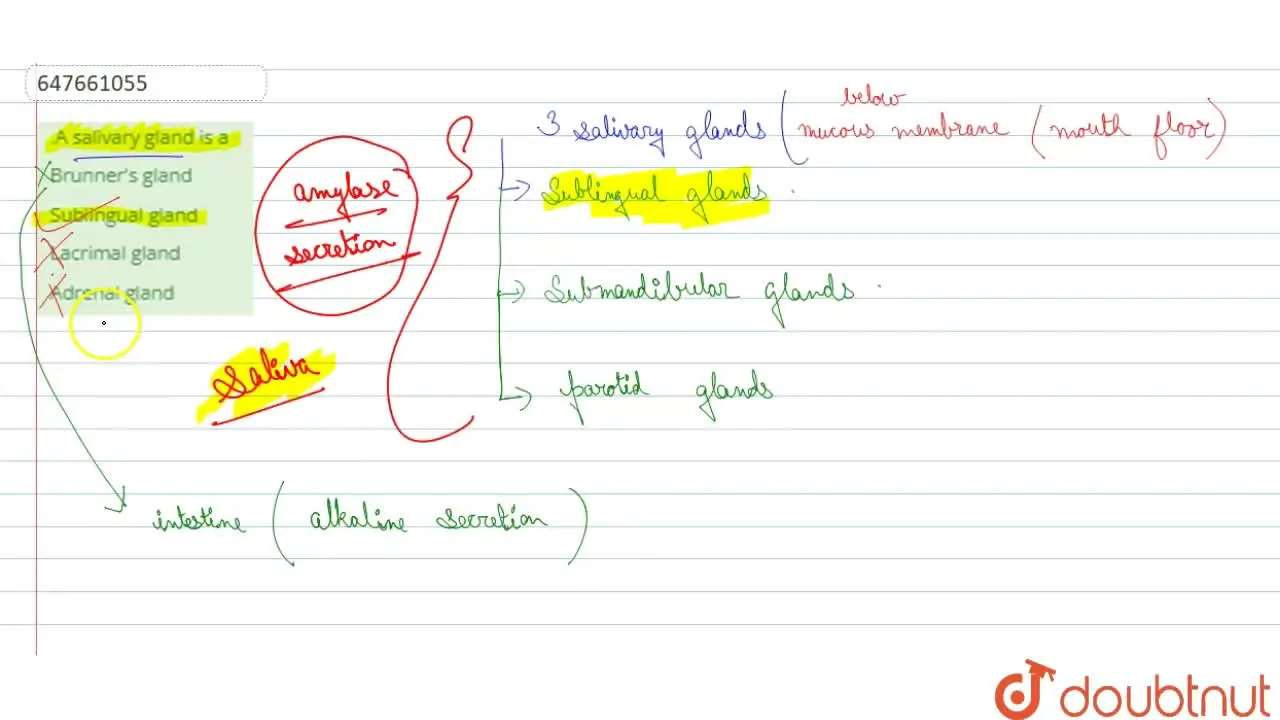 647661055
A salivary gland is a
Brunner's gland
Sublingual gland
Lacrimal gland
Adrenal gland
amylase
secretion
saliva
below
3 salivary glands (mucous membrane (mouth floor)
Sublingual glands.
Submandibular glands.
parotid glands
intestine (alkaline secretion)
doubtnut